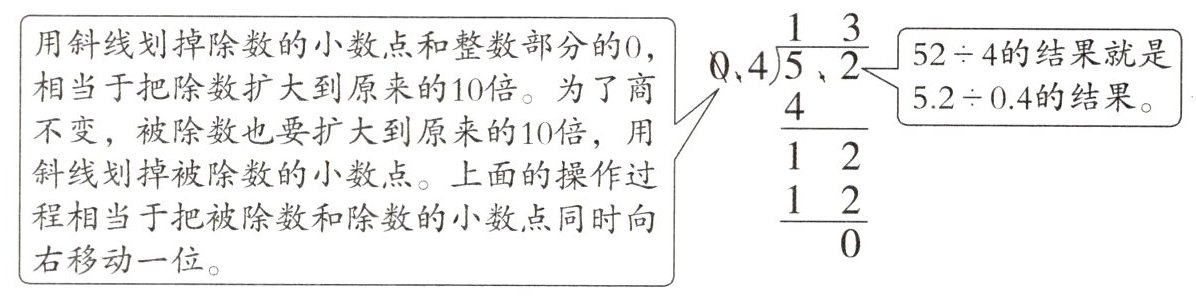 用斜线划掉除数的小数点和整数部分的0,
相当于把除数扩大到原来的10倍。为了商
不变，被除数也要扩大到原来的10倍，用
斜线划掉被除数的小数点。上面的操作过
程相当于把被除数和除数的小数点同时向
右移动一位。
1 3
0.4)5.2
4
1 2
1 2
0
52÷4的结果就是
5.2÷0.4的结果。